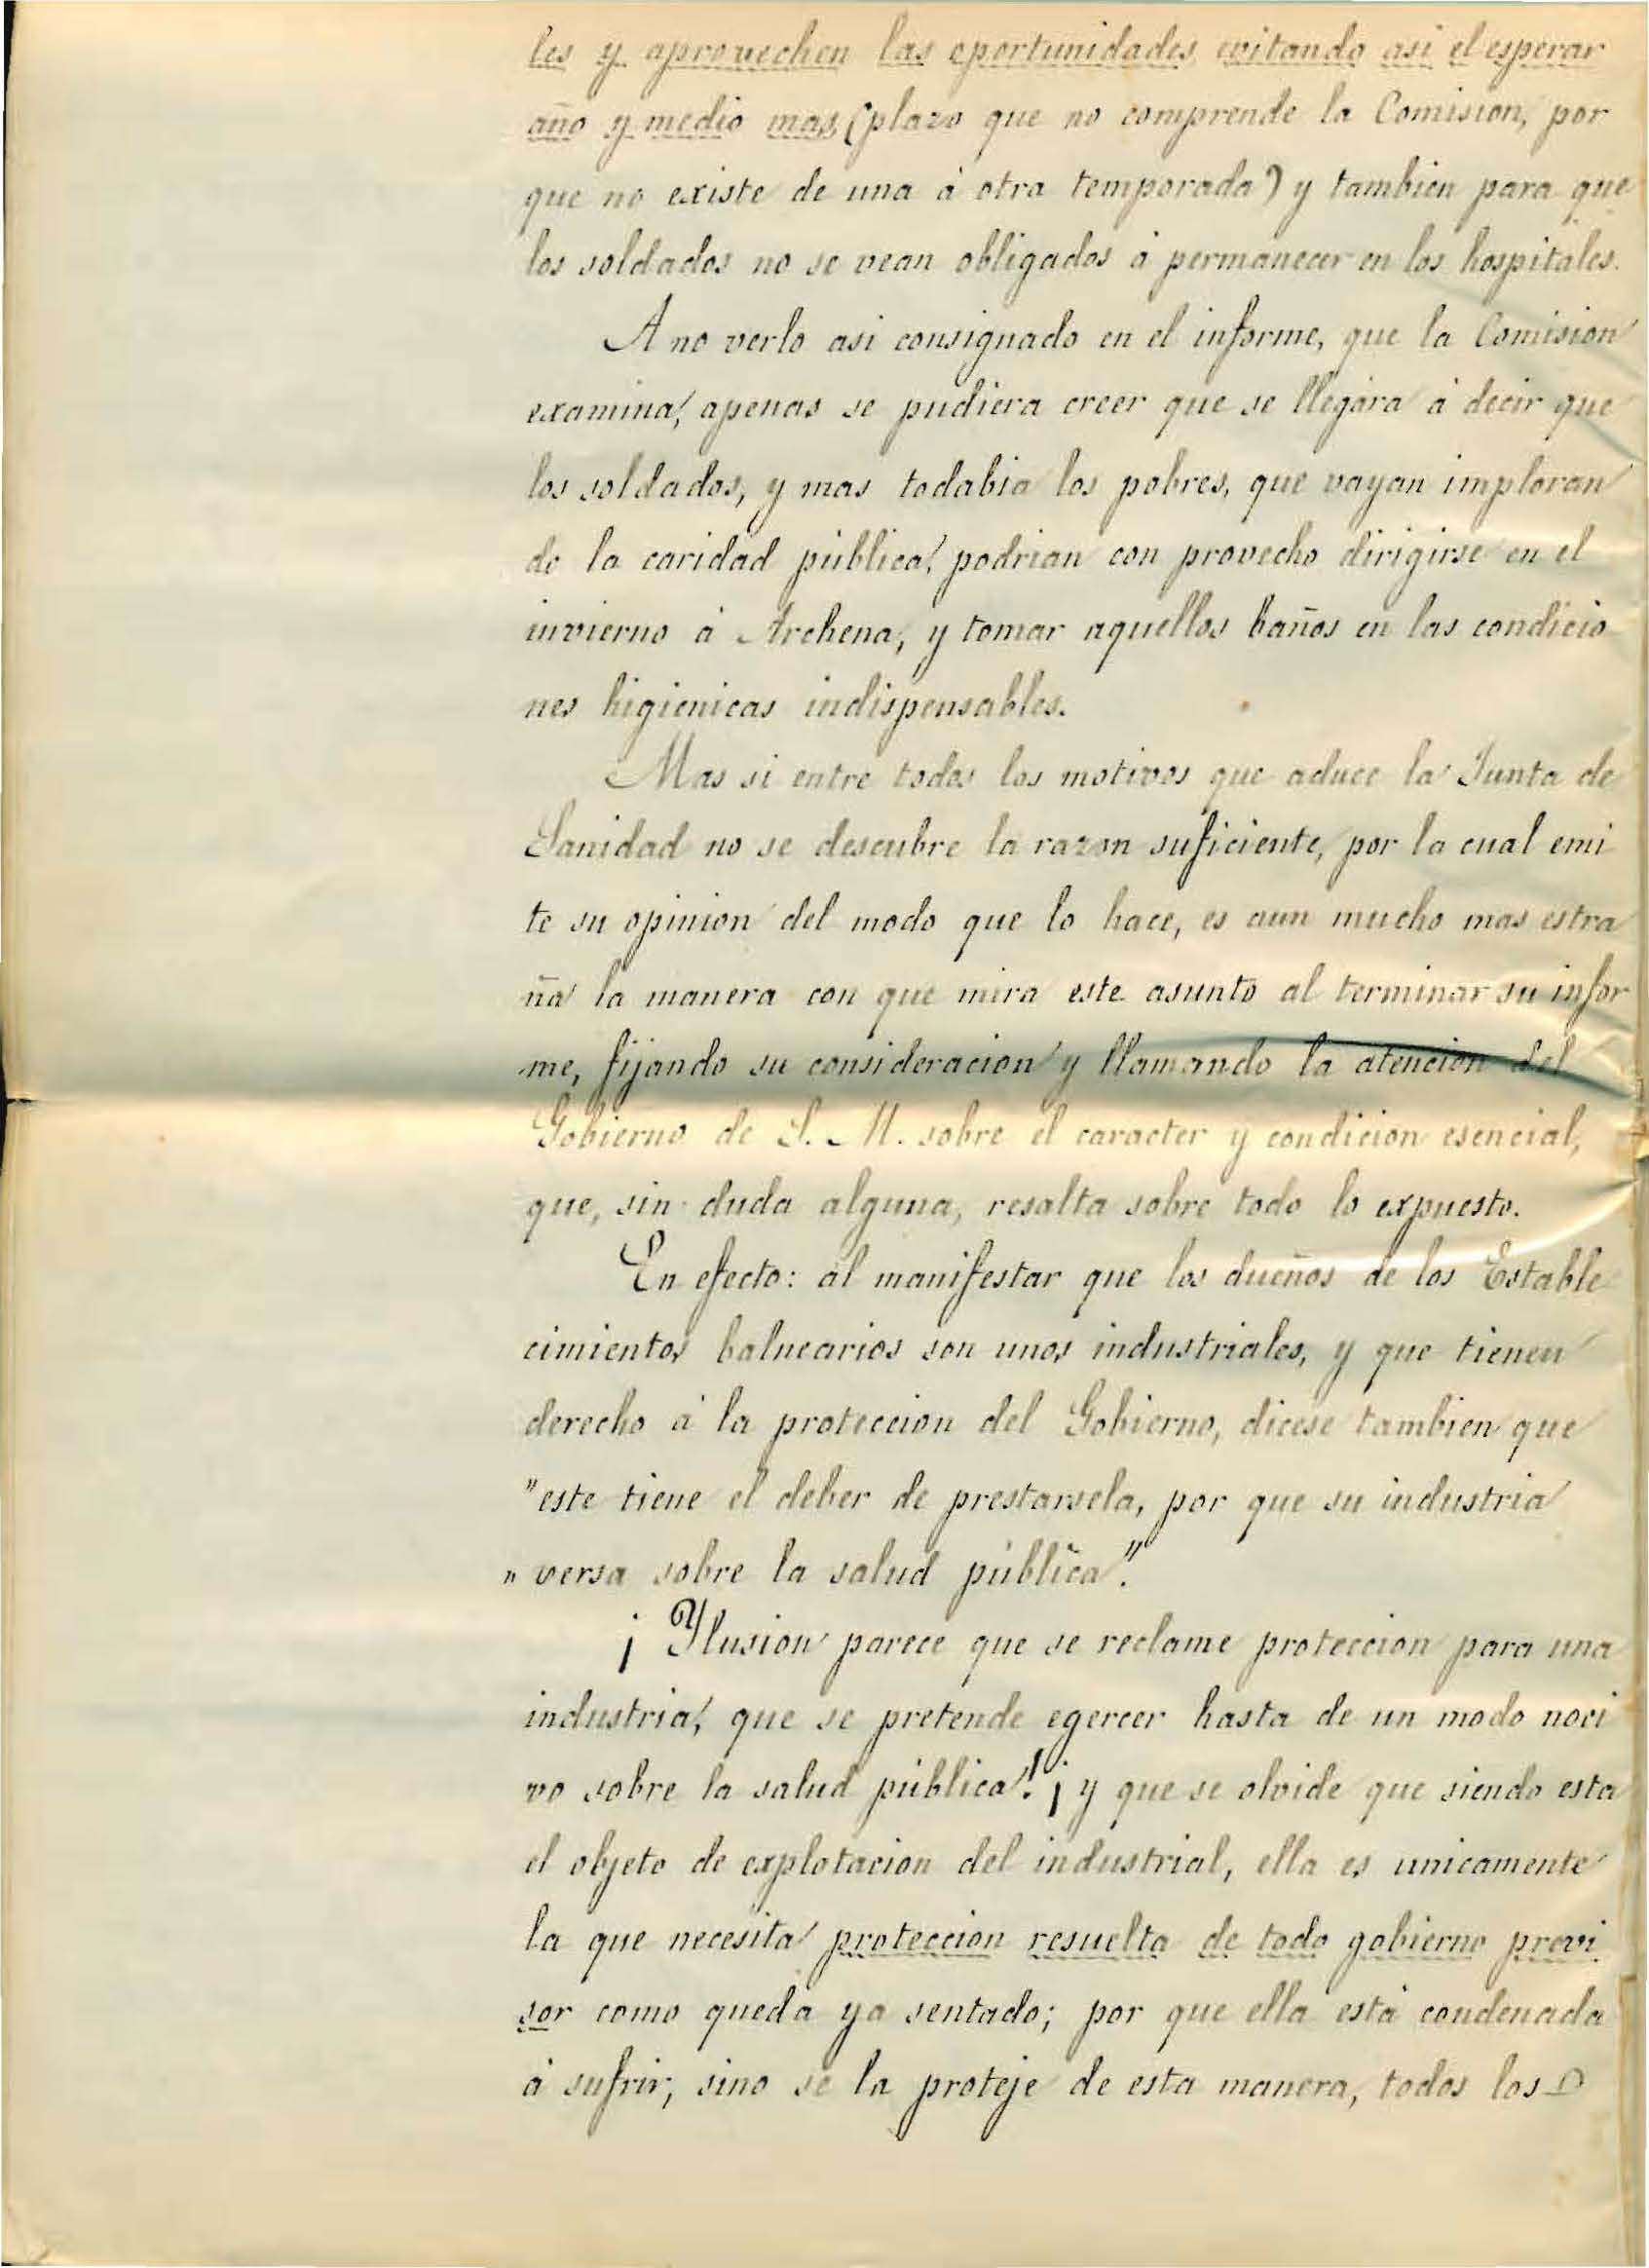 les y aprovechen las oportunidades evitando asi el esperar
año y medio mas (plazo que no comprende la Comision, por
que no existe de una à otra temporada) y tambien para que
los soldados no se vean obligados à permanecer en los hospitales.
A no verlo asi consignado en el informe, que la Comision
examina, apenas se pudiera creer que se llegára à decir que
los soldados, y mas todabia los pobres, que vayan imploran
do la caridad pública, podrian con provecho dirigirse en el
invierno à Archena, y tomar aquellos baños en las condicio
nes higienicas indispensables.
Mas si entre todos los motivos que aduce la Junta de
Sanidad no se descubre la razon suficiente, por la cual emi
te su opinion del modo que lo hace, es aun mucho mas estra
ña la manera con que mira este asunto al terminar su infor
me, fijando su consideracion y llamando la atencion del
Gobierno de S. M. sobre el caracter y condicion esencial,
que, sin duda alguna, resalta sobre todo lo expuesto.
En efecto: al manifestar que los dueños de los Estable
cimientos balnearios son unos industriales, y que tienen
derecho à la proteccion del Gobierno, dicese tambien que
"este tiene el deber de prestarsela, por que su industria
" versa sobre la salud pública."
¡Ylusion parece que se reclame proteccion para una
industria, que se pretende egercer hasta de un modo noci
vo sobre la salud pública! ¡y que se olvide que siendo esta
el objeto de explotacion del industrial, ella es unicamente
la que necesita proteccion resuelta de todo gobierno previ
sor como queda ya sentado; por que ella está condenada
à sufrir, sino se la proteje de esta manera, todos los